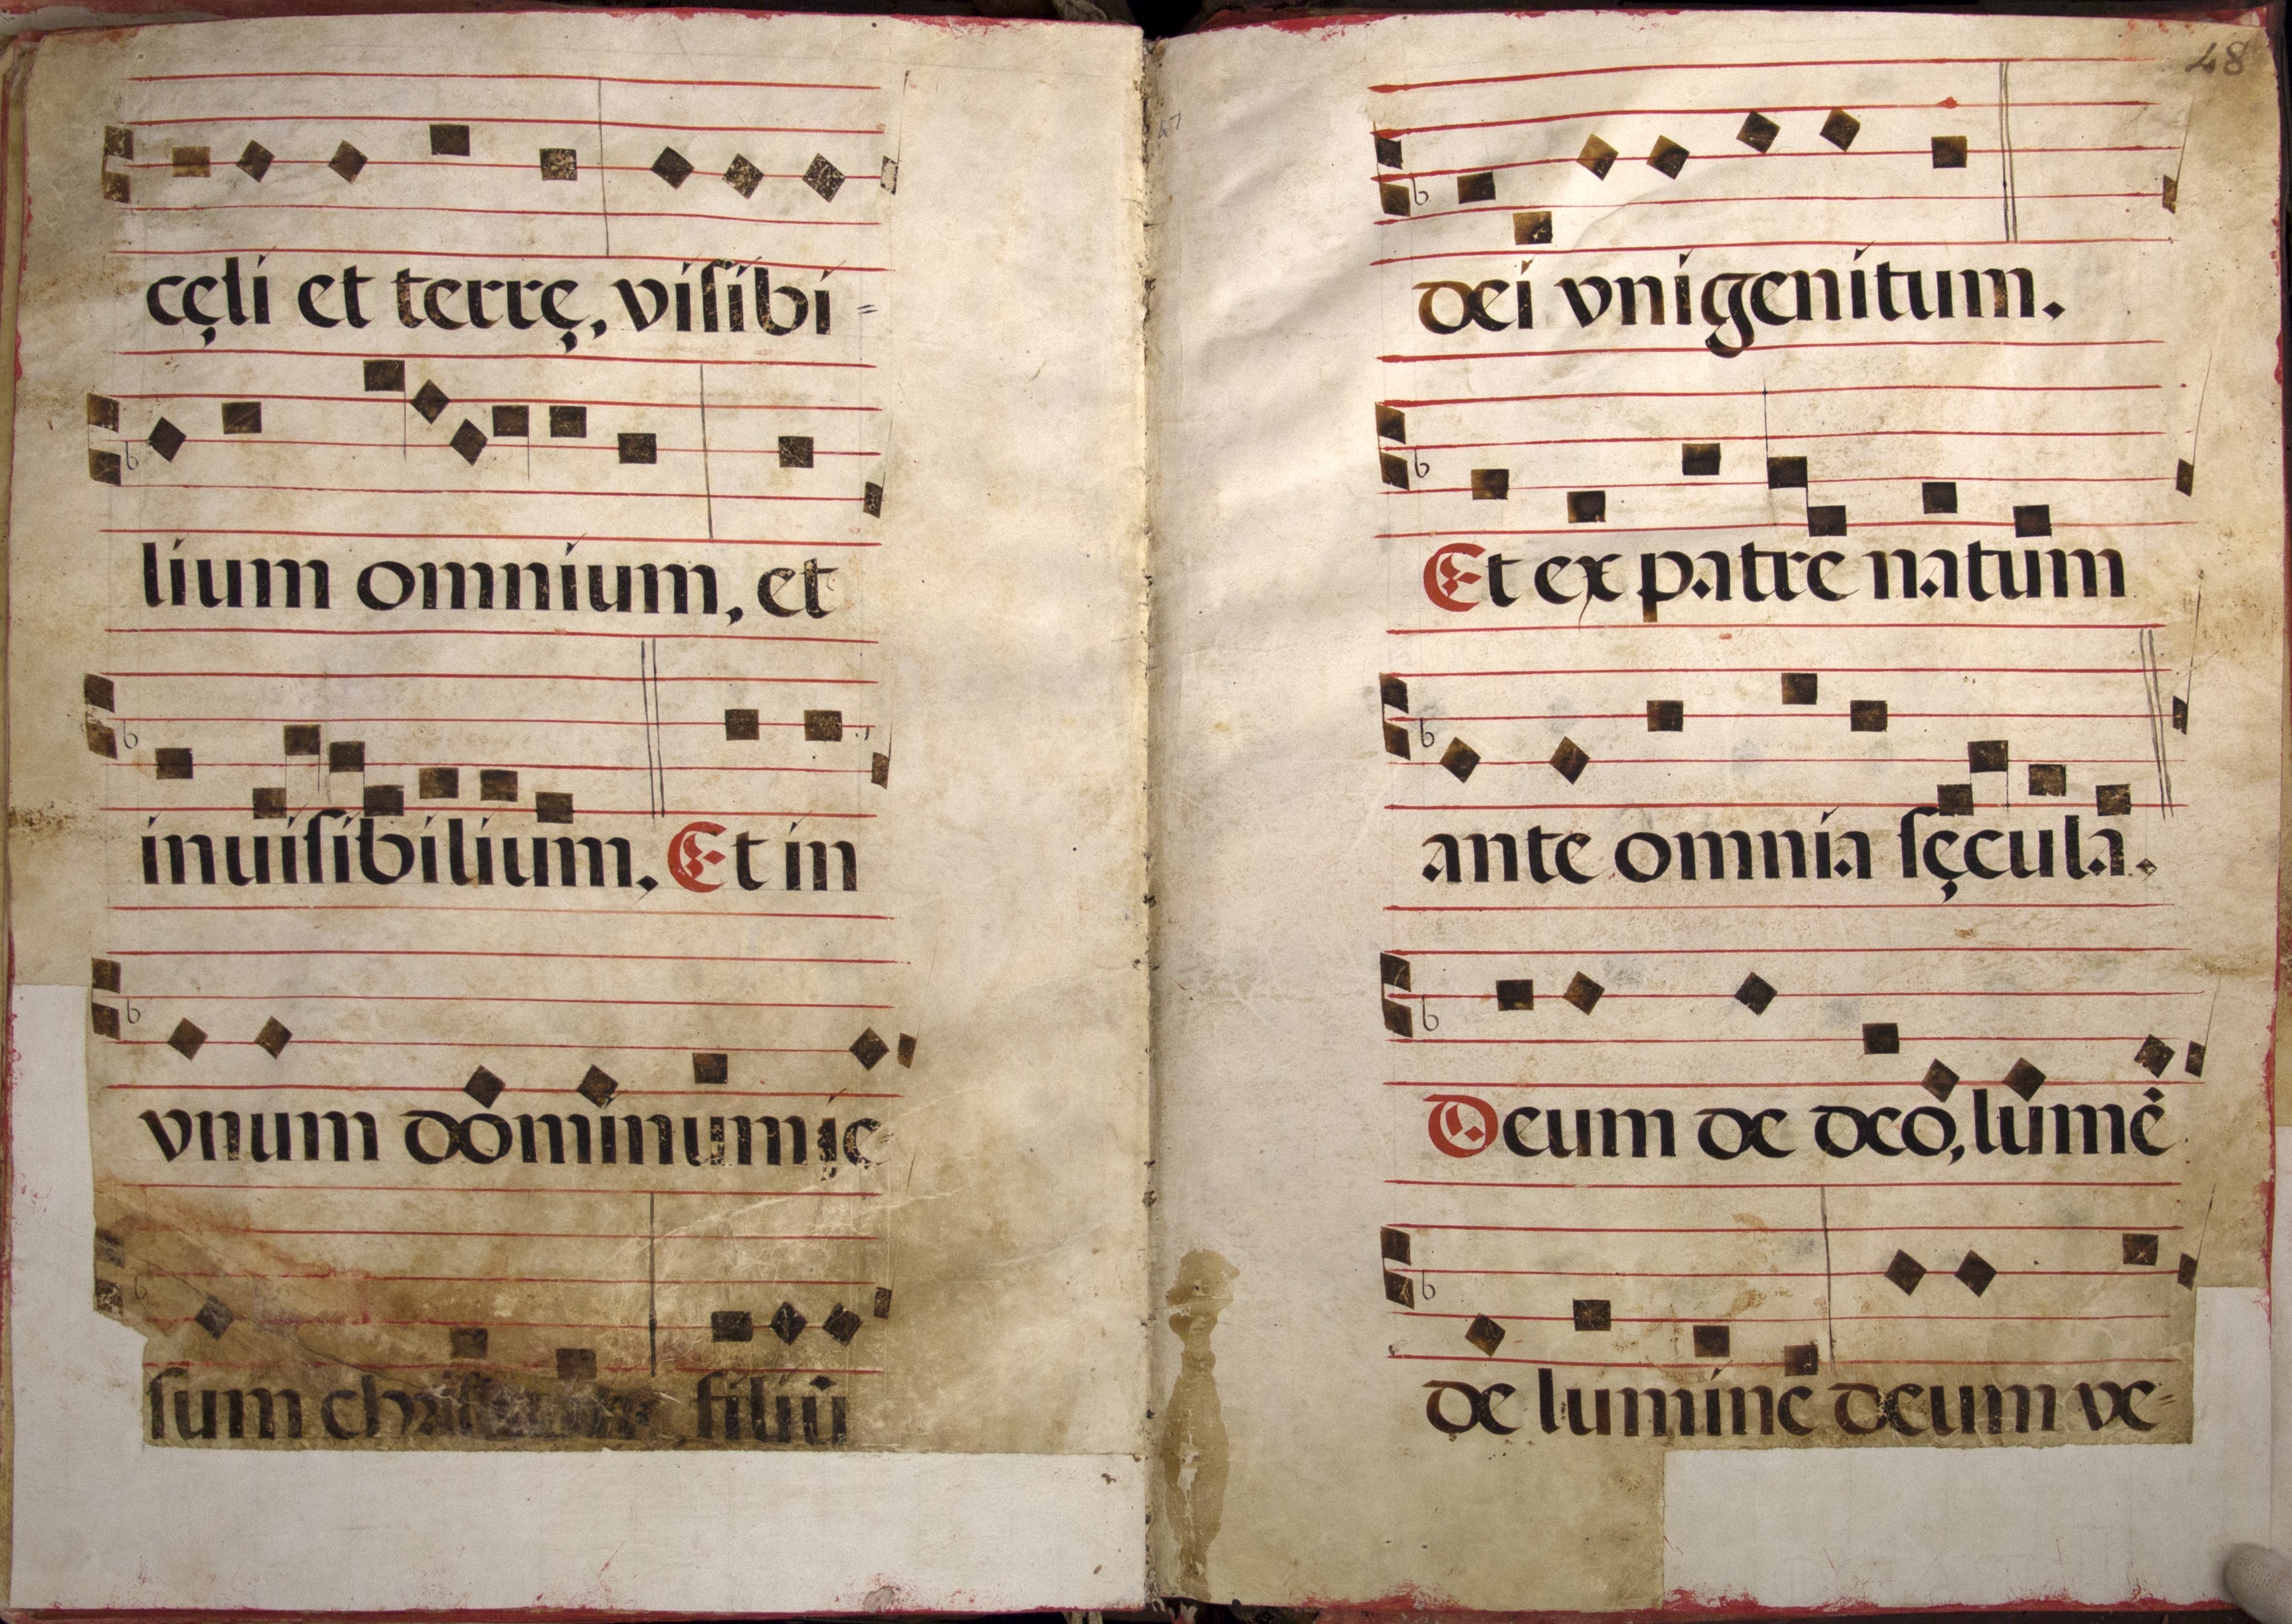 cęli et terrę, viſibi=
lium omnium, et
inuiſibilium. Et in
vnum dominum ie=
ſum chriſtum filiū
48
47
dei vnigenitum.
Et ex patre natum
ante omnia ſęcula.
Deum de deo, lumē
de lumine deum ve=